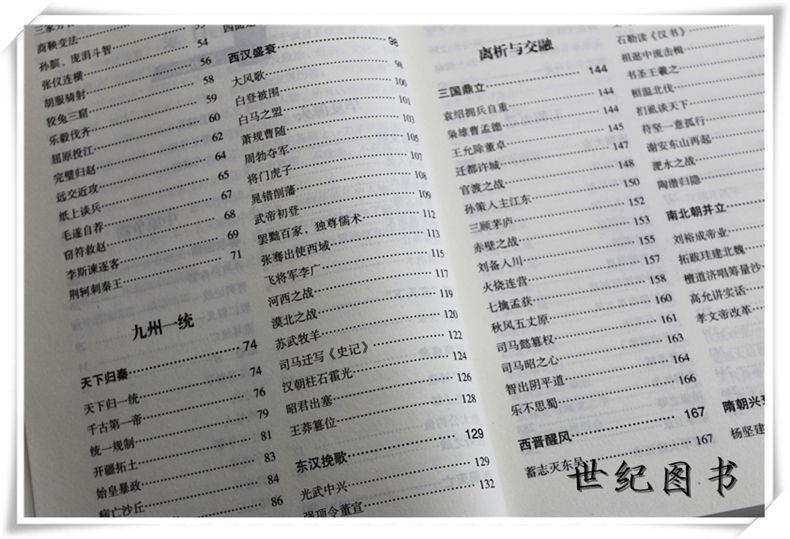 三家分晋
商鞅变法
孙膑、庞涓斗智 53
张仪连横 54
胡服骑射 56
狡兔三窟 58
乐毅伐齐 59
屈原投江 60
完璧归赵 62
远交近攻 64
纸上谈兵 65
毛遂自荐 67
窃符救赵 68
李斯谏逐客 69
荆轲刺秦王 71
九州一统
天下归秦 74
天下归一统 74
千古第一帝 76
统一规制 79
开疆拓土 81
始皇暴政 83
病亡沙丘 84
86
西汉盛衰 98
大风歌 98
白登被围 100
白马之盟 101
萧规曹随 103
周勃夺军 105
将门虎子 107
晁错削藩 108
武帝初登 109
罢黜百家，独尊儒术 112
张骞出使西域 113
飞将军李广 115
河西之战 117
漠北之战 119
苏武牧羊 120
司马迁写《史记》 122
汉朝柱石霍光 124
昭君出塞 126
王莽篡位 128
东汉挽歌 129
光武中兴 129
强项令董宣 132
离析与交融
三国鼎立 144
袁绍拥兵自重 144
枭雄曹孟德 144
王允除董卓 145
迁都许城 147
官渡之战 148
孙策入主江东 150
三顾茅庐 152
赤壁之战 153
刘备入川 155
火烧连营 157
七擒孟获 158
秋风五丈原 160
司马懿篡权 161
司马昭之心 163
智出阴平道 164
乐不思蜀 166
西晋醒风 167
蓄志灭东吴 167
石勒读《汉书》
祖逖中流击楫
书圣王羲之
桓温北伐
扪虱谈天下
苻坚一意孤行
谢安东山再起
淝水之战
陶潜归隐
南北朝并立
刘裕成帝业
拓跋珪建北魏
檀道济唱筹量沙
高允讲实话
孝文帝改革
隋朝兴
杨坚建
世纪图书